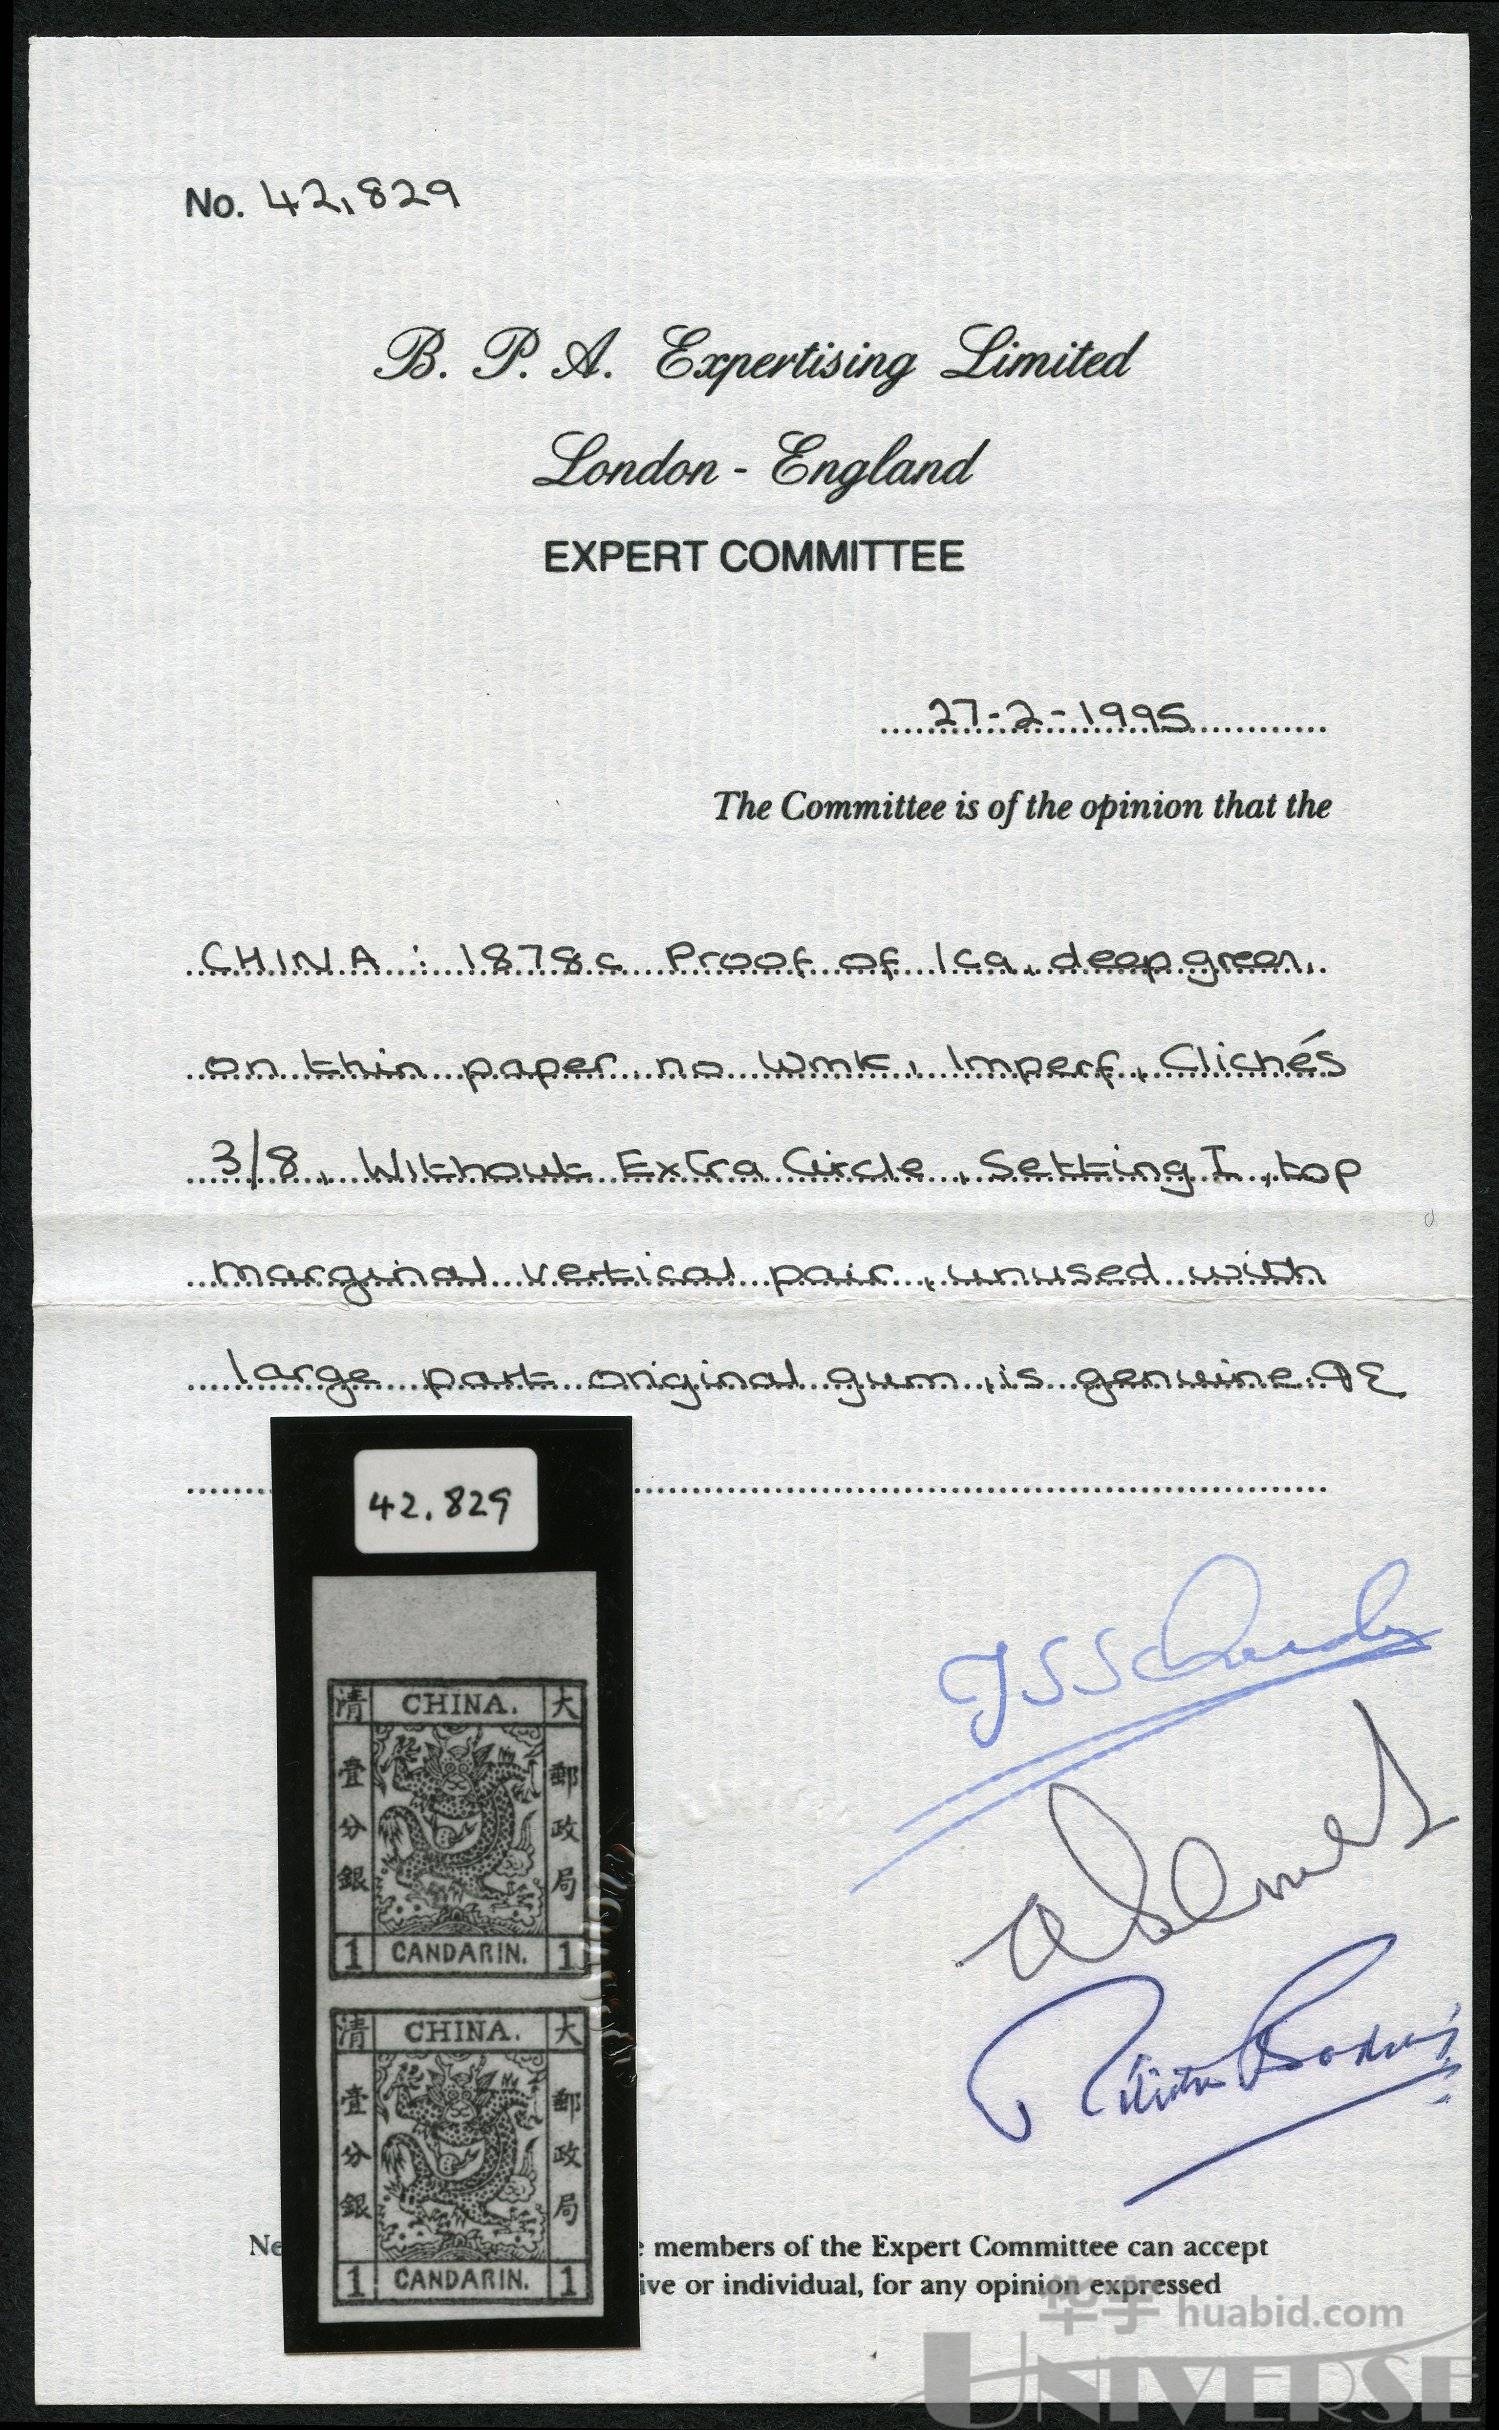 No. 42,829
B. P. A. Expertising Limited
London - England
EXPERT COMMITTEE
27-2-1995
The Committee is of the opinion that the
CHINA : 1878c Proof of 1ca, deep green,
on thin paper, no wmk, Imperf, Clichés
3/8, Without Extra Circle, Setting I, top
marginal vertical pair, unused with
large part original gum, is genuine.
42,829
清 CHINA. 大
壹分銀
郵政局
1 CANDARIN. 1
清 CHINA. 大
壹分銀
郵政局
1 CANDARIN. 1
Ne members of the Expert Committee can accept
ive or individual, for any opinion expressed
华宇 huabid.com
UNIVERSE